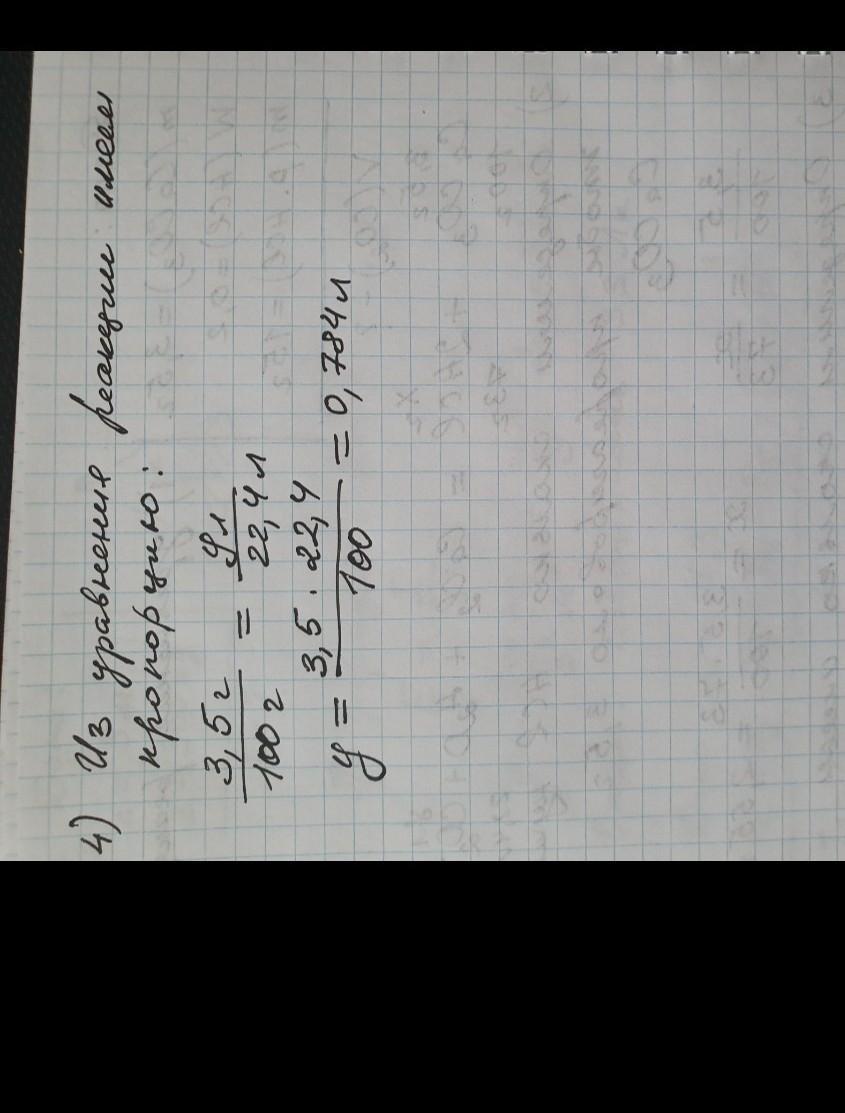 4) Из уравнения реакции имеем
пропорцию:
3,5г / 100г = y л / 22,4 л
y = 3,5 · 22,4 / 100 = 0,784 л